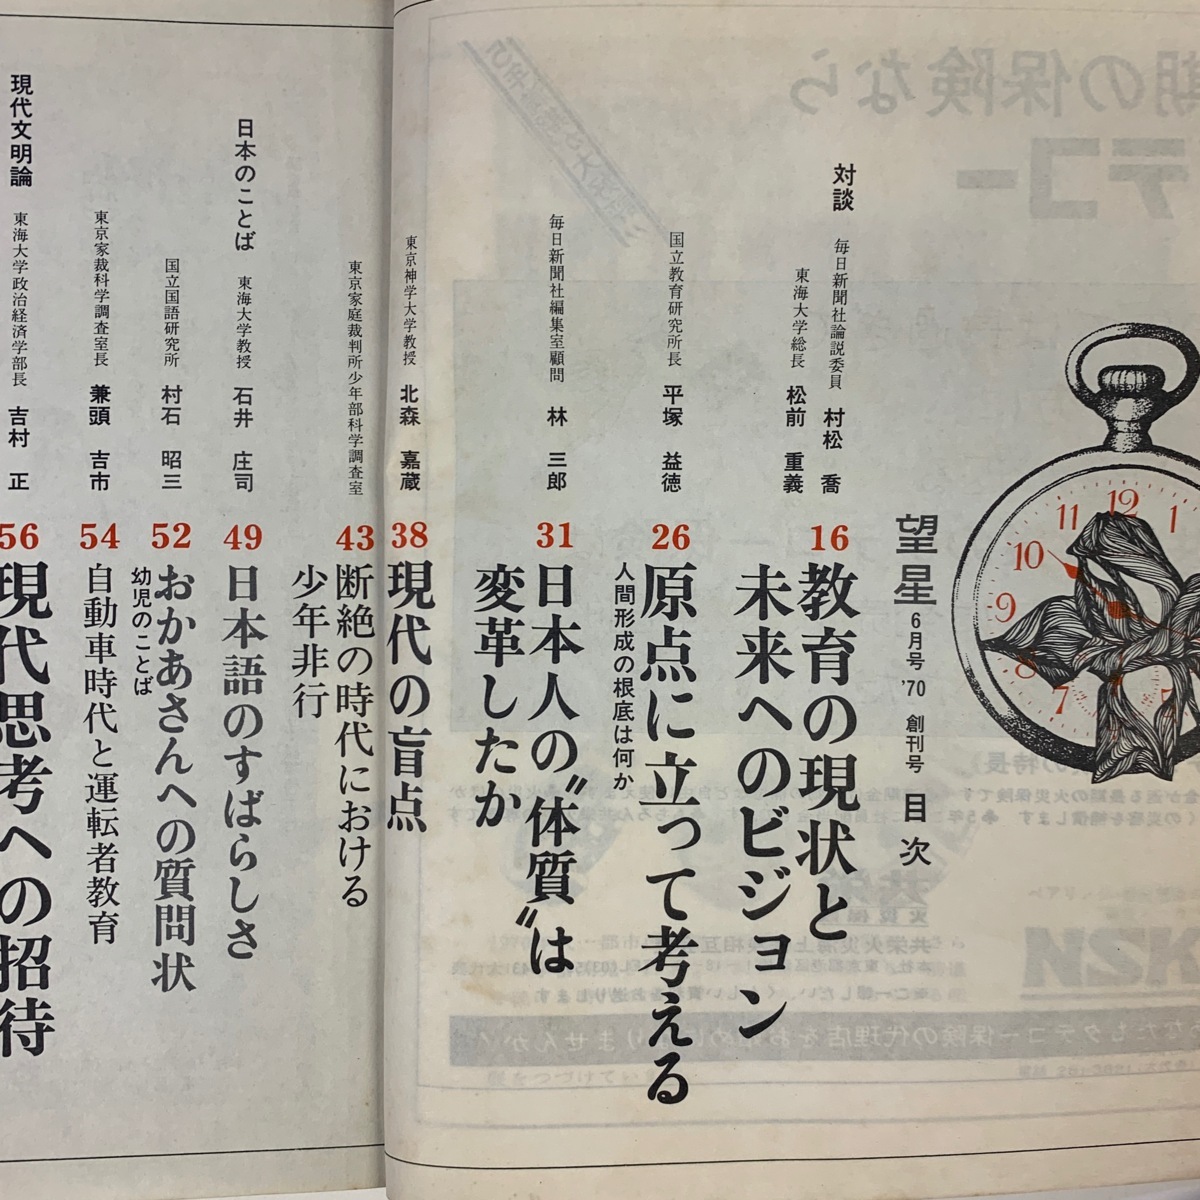 望星 6月号 '70 創刊号 目次
対談
毎日新聞社論説委員 村松 喬
東海大学総長 松前 重義
16 教育の現状と
未来へのビジョン
国立教育研究所長 平塚 益徳
26 原点に立って考える
人間形成の根底は何か
毎日新聞社編集室顧問 林 三郎
31 日本人の〝体質〟は
変革したか
東京神学大学教授 北森 嘉蔵
38 現代の盲点
東京家庭裁判所少年部科学調査室
43 断絶の時代における
少年非行
日本のことば
東海大学教授 石井 庄司
49 日本語のすばらしさ
国立国語研究所 村石 昭三
52 おかあさんへの質問状
幼児のことば
東京家裁科学調査室長 兼頭 吉市
54 自動車時代と運転者教育
現代文明論
東海大学政治経済学部長 吉村 正
56 現代思考への招待
12
1
11
10
9
8
7